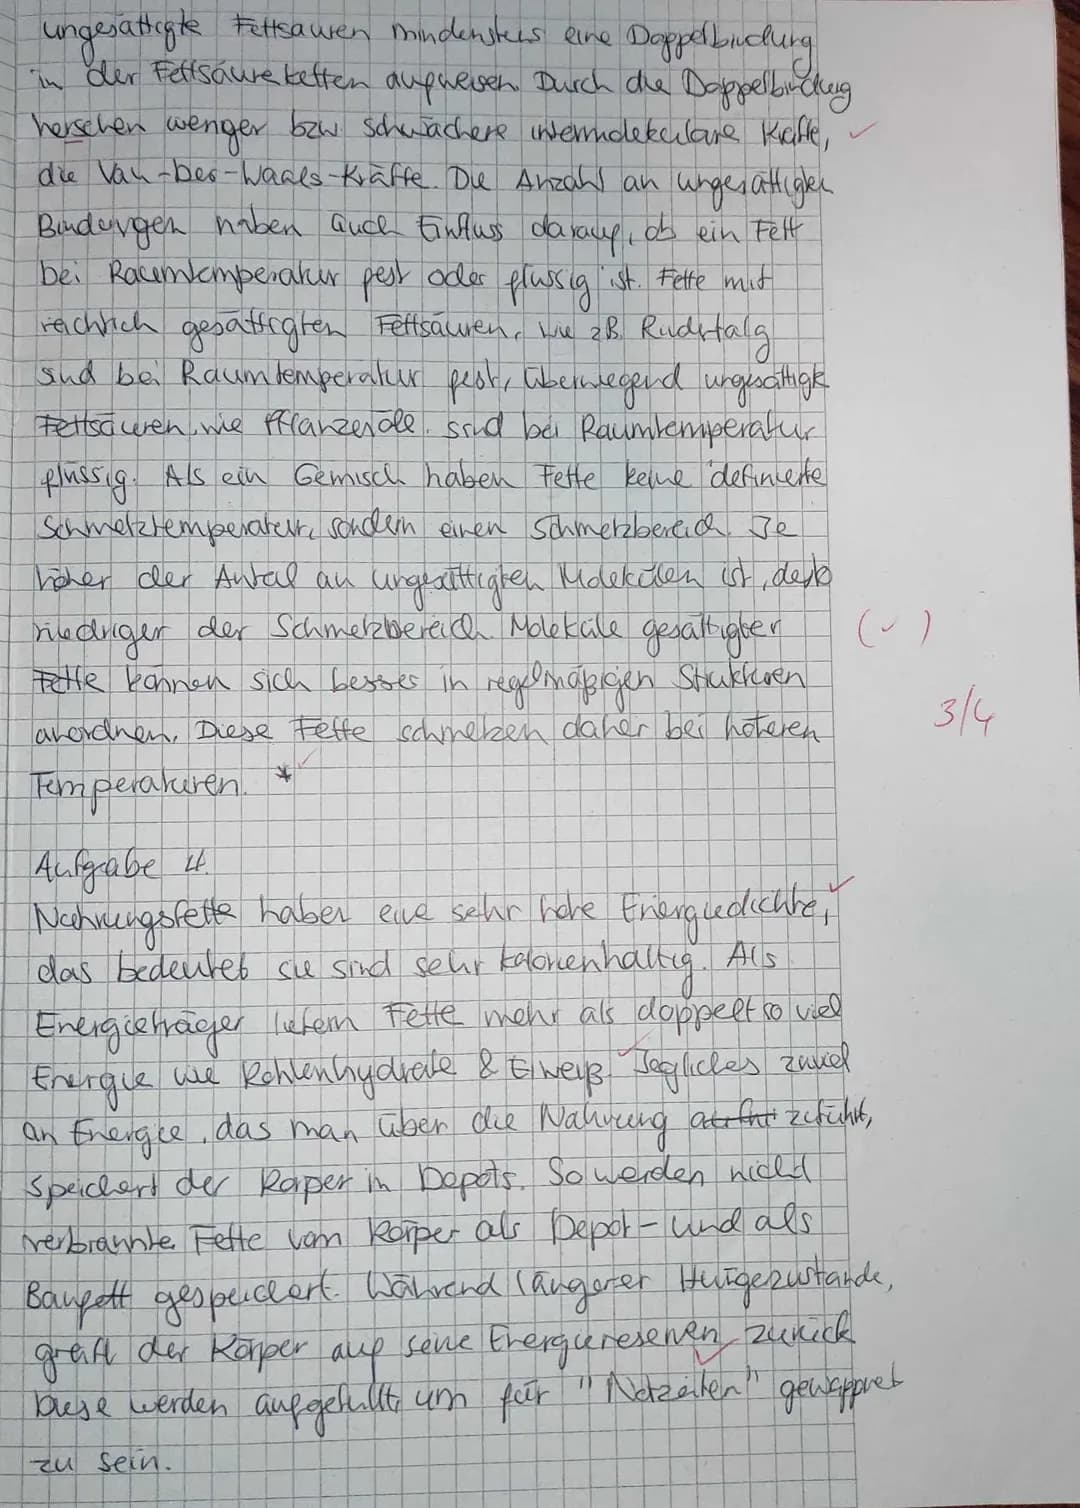 ungesättigte Fettsäuren mindenstens eine Doppelbindung
in der Fettsäureketten aufweisen. Durch die Doppelbindung
herschen weniger bzw schwächere intermolekulare Kräfte,
die Van-Der-Waals-Kräffe. Die Anzahl an ungesättigten
Bindungen haben auch Einfluss darauf, ob ein Fett
bei Raumtemperatur fest oder flüssig ist. Fette mit
reichlich gesättigten Fettsäuren, wie zB. Rudstalg
sind bei Raumtemperatur fest, überwiegend ungesättigte
Fettsäuren, wie Pflanzenöle. sind bei Raumtemperatur
flüssig. Als ein Gemisch haben Fette keine definierte
Schmelztemperatur, sondern einen Schmelzbereich. Je
höher der Anteil an ungesättigten Molekülen ist, desto
niedriger der Schmelzbereich. Moleküle gesättigter
(✓)
Fette können sich besser in regelmäßigen Strukturen
3/4
anordnen. Diese Fette schmelzen daher bei höheren
Temperaturen. *
Aufgabe 4.
Nahrungsfette haben eine sehr hohe Energiedichte,
das bedeutet sie sind sehr kalorienhaltig. Als
Energieträger liefern Fette mehr als doppelt so viel
Energie wie Kohlenhydrate & Eiweiß. Jegliches zuviel
an Energie, das man über die Nahrung zuführt,
speichert der Körper in Depots. So werden nicht
verbrannte Fette vom Körper als Depot- und als
Baufett gespeichert. Während längerer Hungezustände,
greift der Körper auf seine Energieresenven zurück
Diese werden aufgefüllt, um für "Notzeiten" gewappnet
zu sein.